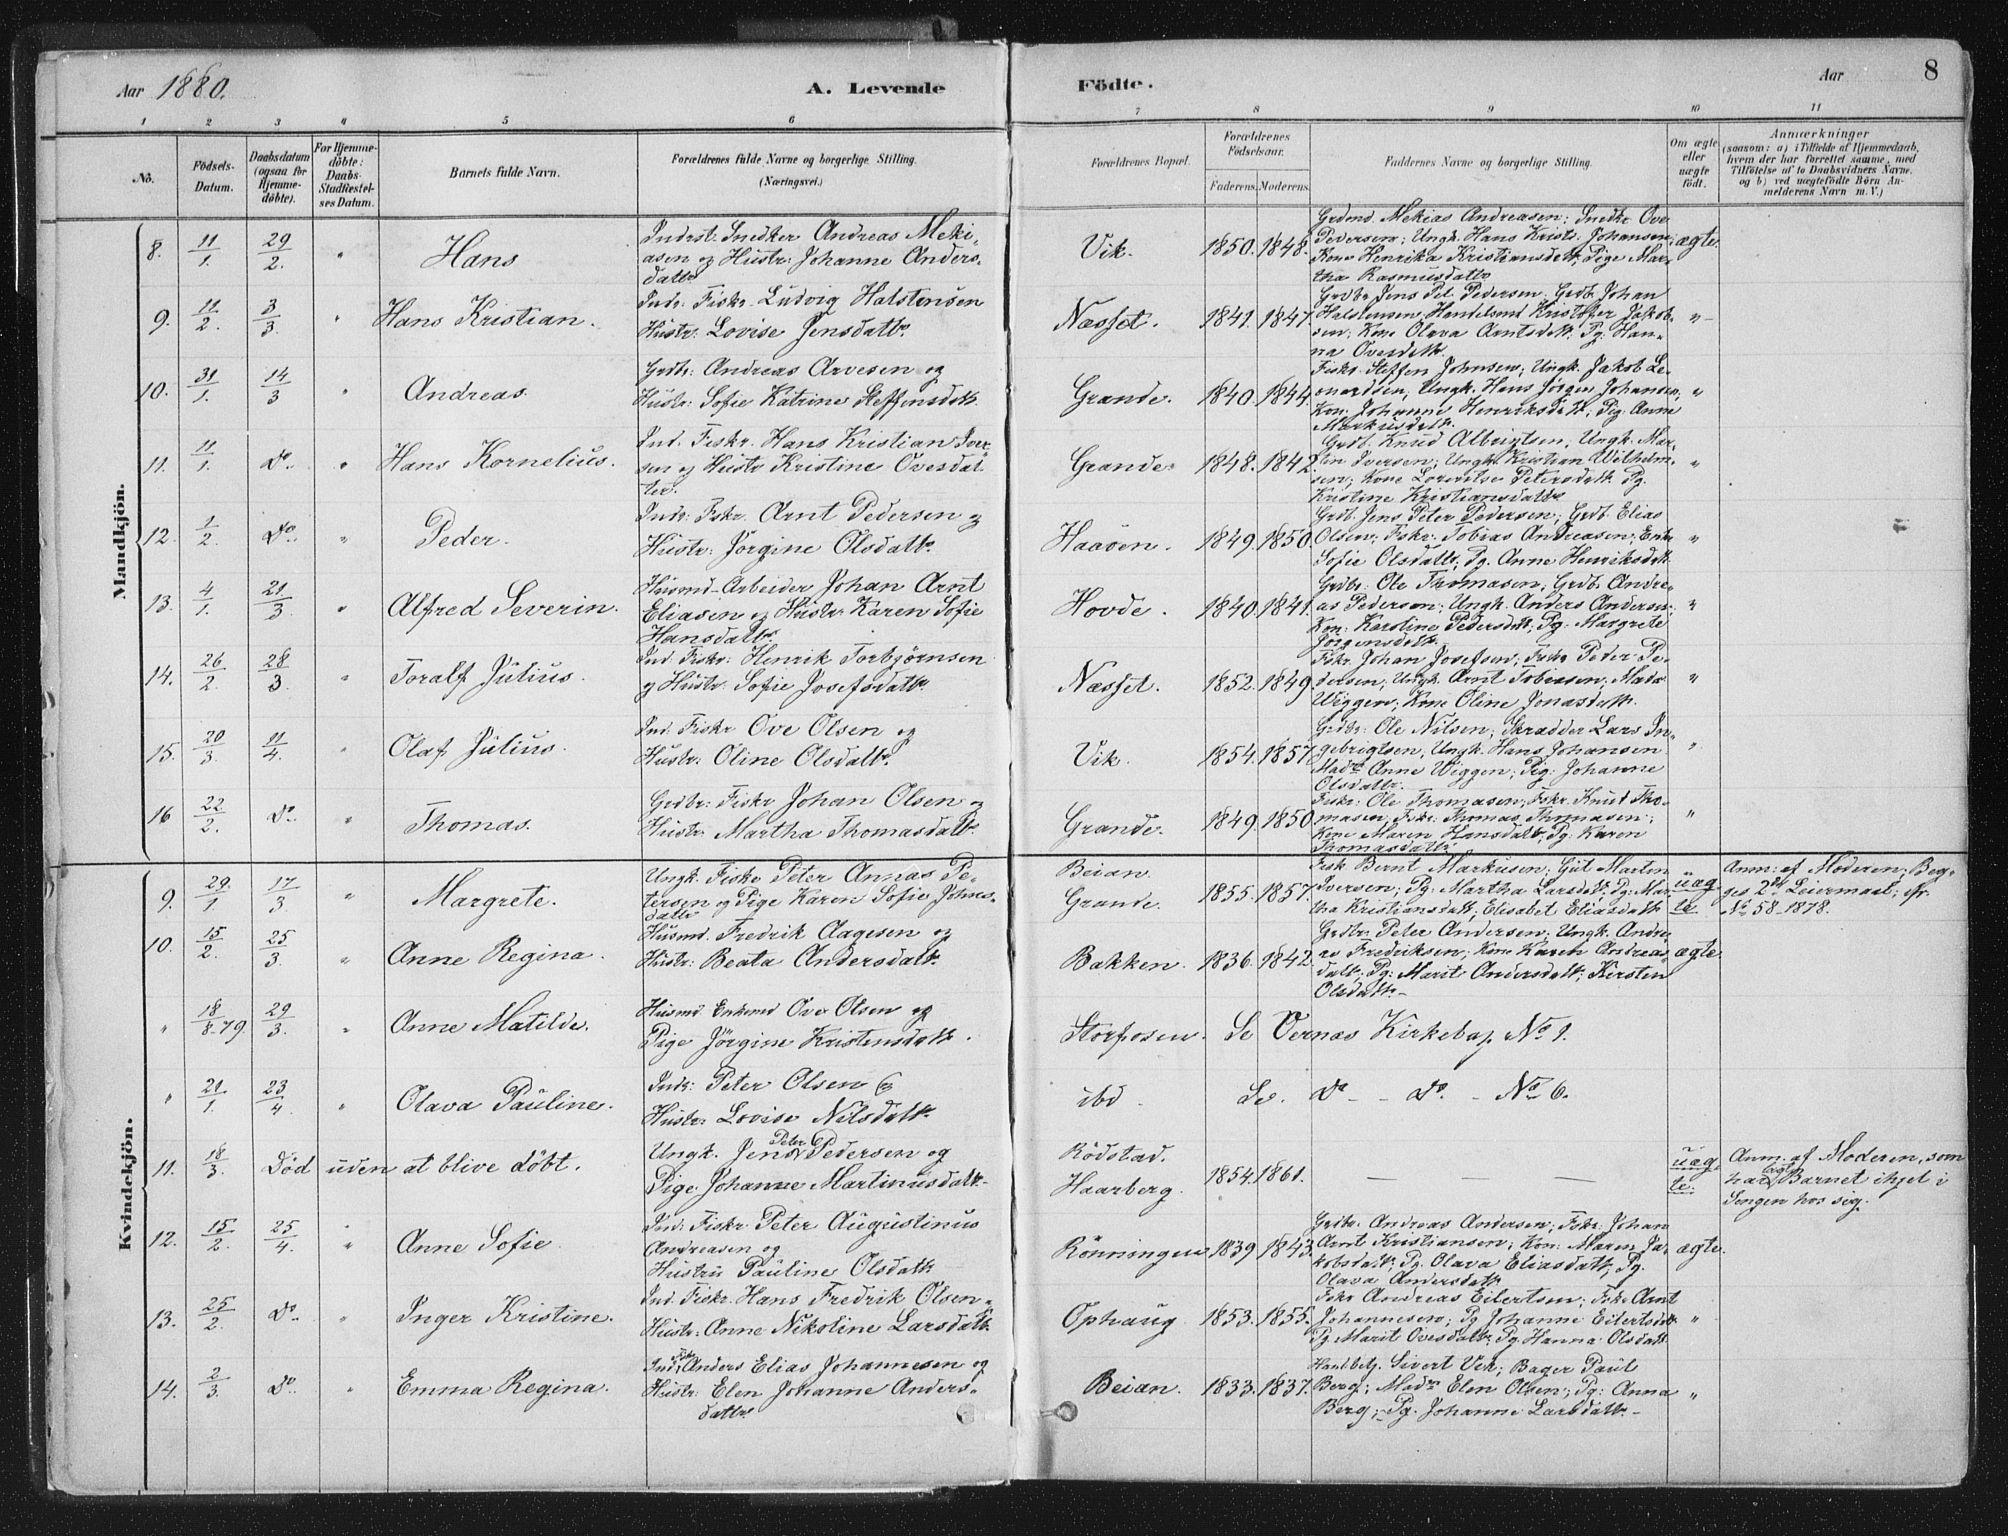 Aar 1880. A. Levende Födte. Aar 8
1 2 3 4 5 6 7 8 9 10 11
No.
Födsels-Datum.
Daabsdatum (ogsaa for Hjemme-döbte).
For Hjemme-döbte: Daabs-Stadfæstel-ses Datum.
Barnets fulde Navn.
Forældrenes fulde Navne og borgerlige Stilling. (Næringsvei.)
Forældrenes Bopæl.
Forældrenes Födselsaar.
Faderens. Moderens.
Faddernes Navne og borgerlige Stilling.
Om ægte eller uægte födt.
Anmærkninger
(saasom: a) i Tilfælde af Hjemmedaab,
hvem der har forrettet samme, med
Tilföielse af to Daabsvidners Navne,
og b) ved uægtefödte Börn An-
melderens Navn m. V.)
Mandkjön.
8. 11/1. 29/2. " Hans
Indrst. Snedker Andreas Meki-
asen og Hustr: Johanne Anders-
datter
Vik. 1850. 1848.
Grdmd. Mekias Andreasen; Snedkr Ove
Pedersen; Ungk. Hans Krist. Johansen;
Kone Henrika Kristiansdtr; Pige Mar-
tha Rasmusdatter
ægte.
9. 11/2. 3/3. " Hans Kristian.
Indr: Fiskr. Ludvig Halstensen
Hustr: Lovise Jensdattr.
Næsset. 1841. 1847.
Grdbr Jens Pet. Pedersen. Grdb. Johan
Halstensen, Handelsmd Kristofer Jakob-
sen; Kone Olava Arntsdtr. Pg: Han-
na Ovesdttr.
"
10. 31/1. 14/3 " Andreas.
Grdbr: Andreas Arvesen og
Hustr: Sofie Katrine Steffensdtr.
Grande. 1840. 1844.
Fiskr Steffen Johnsen; Ungk. Jakob Le-
onardsen, Ungk. Hans Jörgen Johansen,
Kon. Johanne Henriksdtr; Pig. Anne
Markusdtr.
"
11. 11/1. Do. " Hans Kornelius.
Ind. Fiskr. Hans Kristian Iver-
sen og Hustr Kristine Ovesdat-
ter.
Grande. 1848. 1842.
Grdb. Knud Albrigtsen, Ungk. Mar-
tin Iversen; Ungk Kristian Wilhelm-
sen; Kone Lorentse Petersdtr. Pg.
Kristine Kristiansdattr
"
12. 1/2. Do. " Peder.
Indr: Fskr. Arnt Pedersen og
Hustr: Jörgine Olsdattr.
Haaven. 1849. 1850.
Grdb. Jens Peter Pedersen; Grdb. Elias
Olsen; Fiskr. Tobias Andreasen; Enk.
Sofie Olsdattr; Pg. Anne Henriksdtr.
"
13. 4/1. 21/3. " Alfred Severin.
Husmd-Arbeider Johan Arnt
Eliasen og Hustr Karen Sofie
Hansdattr.
Hovde. 1840. 1841.
Grdbr: Ole Thomasen; Grdb. Andre-
as Pedersen; Ungk. Anders Andersen;
Kon: Karoline Pedersdtr, Pg. Margrete
Jörgensdtr.
"
14. 26/2. 28/3. " Toralf Julius.
Ind. Fiskr: Henrik Torbjørnsen
og Hustr. Sofie Josefsdattr.
Næsset. 1852. 1849.
Fskr. Johan Josefsen; Fiskr Peder Pe-
dersen; Ungk. Arnt Tobiesen; Madm
Wiggen; Kone Oline Jonasdtr.
"
15. 20/3. 11/4. " Olaf Julius.
Ind. Fiskr Ove Olsen og
Hustr: Oline Olsdattr.
Vik. 1854. 1857.
Grdbr: Ole Nilsen; Skrædder Lars In-
gebrigtsen, Ungk. Hans Johansen
Madm Anne Wiggen; Pig: Johanne
Olsdattr.
"
16 22/2. Do. " Thomas.
Grdbr: Fiskr Johan Olsen og
Hustr. Martha Thomasdattr.
Grande. 1849. 1850.
Fiskr: Ole Thomasen; Fskr. Knut Tho-
masen, Fskr: Thomas Thomasen;
Kone Maren Hansdattr, Pg: Karen
Thomasdattr
"
Kvindekjön.
9. 29/1. 17/3 " Margrete.
Ungk. Fiskr Peter Annas Pe-
tersen og Pige Karen Sofie Johns-
dattr
Beian.
Grande. 1855. 1857.
Fisk Bernt Markusen; Gut Marten
Iversen; Pg: Martha Larsdtr, Pg: Mar-
tha Kristiansdtr; Elisabet Eliasdattr
uæg-
te.
Anm: af Moderen; Beg-
ges 2det Leiermaal; cfr.
No 58-1878.
10. 15/2. 25/3. " Anne Regina.
Husmd. Fredrik Aagesen og
Hustr: Beata Andersdattr.
Bakken. 1836. 1842.
Grdbr: Peter Andersen; Ungk. Andre-
as Fredriksen; Kone Karen Andreas-
datt; Pg: Marit Andersdtr; Kirsten
Olsdattr.
ægte.
" 18/8.79. 29/3. " Anne Matilde.
Husmd. Enkemd Ove Olsen og
Pige Jörgine Kristensdattr.
Storfosen. Se Vernes Kirkebog No 1.
" 21/1. 23/4. " Olava Pauline.
Indr: Peter Olsen og
Hustr: Lovise Nilsdattr.
ibd. Se. Do - Do. - No 6.
11. 18/3. Död uden at blive döbt.
Ungk. Jens Peter Pedersen og
Pige Johanne Martinusdattr.
Rödstad.
Haarberg. 1854. 1861. — — —
uæg-
te.
Anm. af Moderen, som
har lagt Barnet ihjel i
Sengen hos sig.
12. 15/2. 25/4. " Anne Sofie.
Ind: Fiskr Peter Augustinus
Andreasen og
Hustru Pauline Olsdattr
Rönningen 1839 1843.
Grdbr. Andreas Andersen; Fskr: Johan
Arnt Kristiansen; Kon: Maren Ja-
kobsdattr; Pg. Olava Eliasdattr; Pg.
Olava Andersdattr
ægte.
13. 25/2. Do. " Inger Kristine.
Ind. Fiskr. Hans Fredrik Olsen
Hustr: Anne Nikoline Larsdattr.
Ophaug 1853. 1855.
Fskr Andreas Eilertsen; Fskr Arnt
Johannesen; Pg Johanne Eilertsdtr
Pg. Marit Ovesdattr; Pg Hanna Olsdattr
"
14. 2/3. Do. " Emma Regina.
Ind. Anders Elias Johannesen og
Hustr: Elen Johanne Anders-
dattr.
Beian. 1833. 1837.
Handbetj. Sivert Vik; Bager Paul
Berg; Madm Elen Olsen; Pg: Anna
Berg; Pg. Johanne Larsdattr.
"